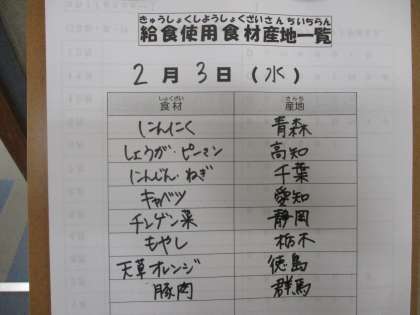 きゅうしょくしようしょくざいさんちいちらん
給食使用食材産地一覧
2月3日(水)
しょくざい さんち
食材 産地
にんにく 青森
しょうが・ピーマン 高知
にんじん・ねぎ 千葉
キャベツ 愛知
チンゲン菜 静岡
もやし 栃木
天草オレンジ 徳島
豚肉 群馬